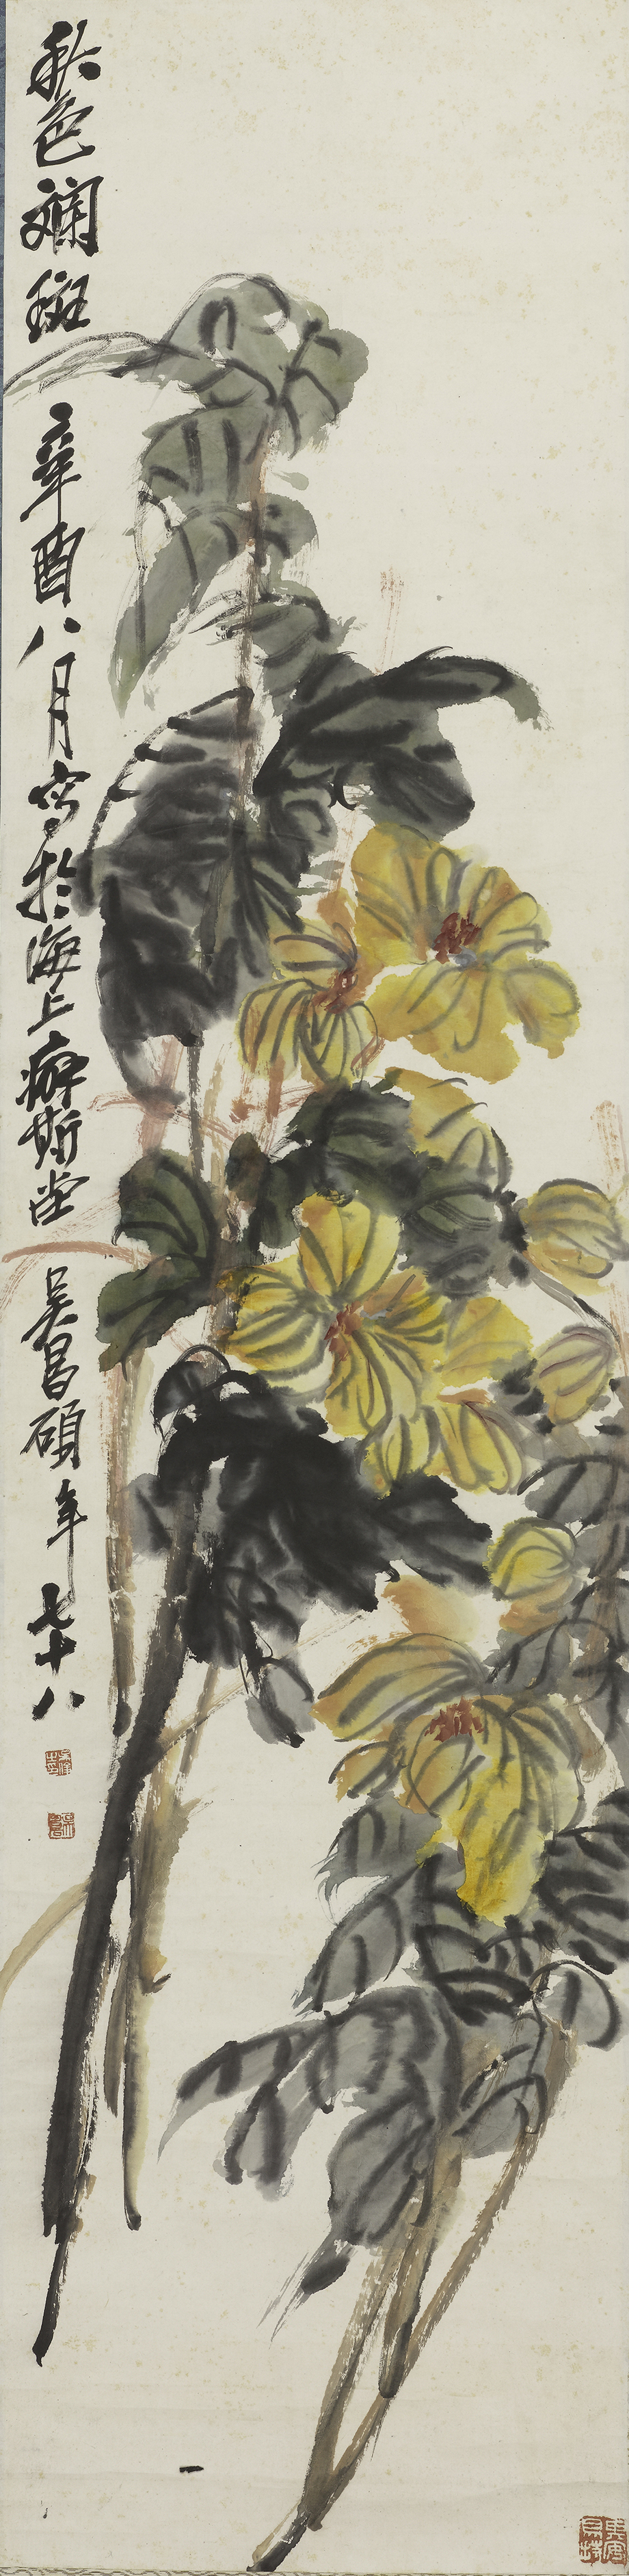 秋色斕斑 辛酉八月寫於海上癖斯堂 吳昌碩年七十八